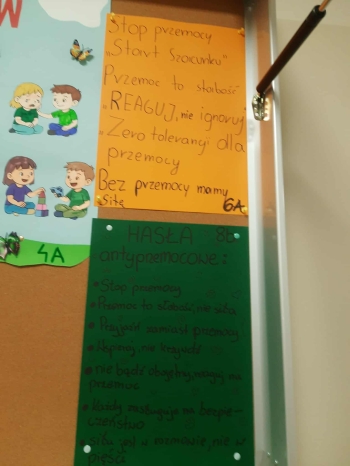 W
Stop przemocy
„Start Szacunku"
Przemoc to słabość
„REAGUJ, nie ignoruj
„Zero tolerancji dla
przemocy
Bez przemocy mamy
siłę
6A
4A
HASŁA 8b
antyprzemocowe:
Stop przemocy
Przemoc to słabość, nie siła
Przyjaźń zamiast przemocy
nie krzywdź
nie bądź obojętny, reaguj na
przemoc
Każdy zasługuje na bezpie-
czeństwo
siła jest w rozmowie, nie w
pięści